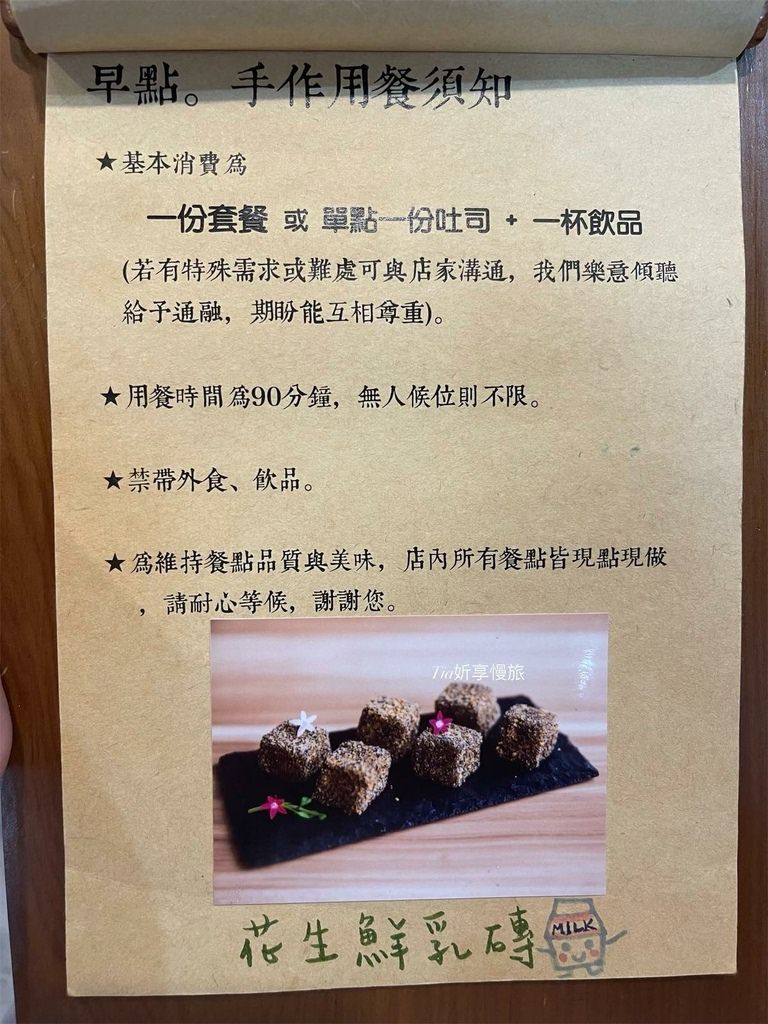 早點。手作用餐須知
★基本消費為
一份套餐 或 單點一份吐司 + 一杯飲品
(若有特殊需求或難處可與店家溝通，我們樂意傾聽
給予通融，期盼能互相尊重)。
★用餐時間為90分鐘，無人候位則不限。
★禁帶外食、飲品。
★為維持餐點品質與美味，店內所有餐點皆現點現做
，請耐心等候，謝謝您。
Tia妡享慢旅
花生鮮乳磚
MILK